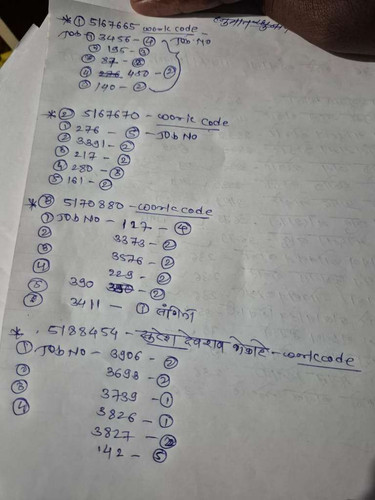 * ① 5167665 work code -
Job ① 3456 - ④ Job.No
② 195 - ③
③ 37 - ②
④ 450 - ②
⑤ 140 - ②
* ② 5167670 - work code
① 276 - ⑤ - Job No
② 3391 - ②
③ 217 - ②
④ 280 - ③
⑤ 161 - ②
* ③ 5170880 - work code
① Job No - 127 - ④
② 3373 - ②
③ 3576 - ②
④ 229 - ②
⑤ 390 - ②
3411 - ①
* . 5188454 - देवराव - work code
① Job No - 3906 - ②
② 3693 - ②
③ 3739 - ①
④ 3826 - ①
3827 - ②
142 - ⑤